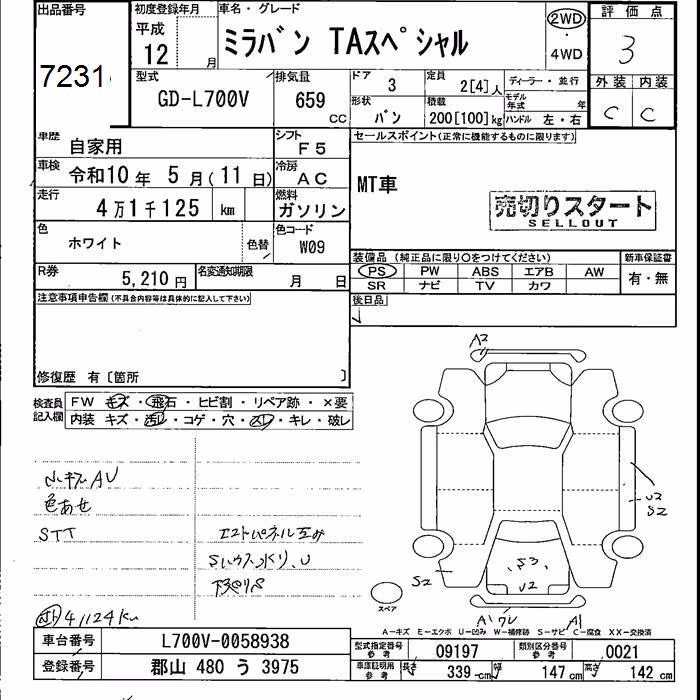 出品番号
7231
初度登録年月
平成
12 月
車名・グレード
ミラバン TAスペシャル
2WD
・
4WD
評価点
3
外装 内装
C C
型式
GD-L700V
排気量
659
CC
ドア
3
定員
2[4]人
ディーラー・並行
モデル年式 年
形状
バン
積載
200[100]kg
ハンドル 左・右
車歴
自家用
シフト
F5
車検
令和10年 5月(11日)
冷房
AC
走行
4万1千125 km
燃料
ガソリン
色
ホワイト
色替
色コード
W09
R券
5,210円
名変通知期限
月 日
セールスポイント(正常に機能するものに限ります)
MT車
売切りスタート
SELLOUT
装備品(純正品に限り○をつけてください)
PS PW ABS エアB AW
SR ナビ TV カワ
新車保証書
有・無
後日品
注意事項申告欄(不具合内容等は具体的に記入して下さい)
修復歴 有〔箇所 〕
検査員記入欄
FW キズ・飛石・ヒビ割・リペア跡・×要
内装 キズ・汚レ・コゲ・穴・スレ・キレ・破レ
小キズAU
色あせ
STT
下廻りS
41124km
A2
U2
S2
S3
U2
S2
A1
A1
スペア
A-キズ E-エクボ U-凹み W-補修跡 S-サビ C-腐食 XX-交換済
車台番号
L700V-0058938
登録番号
郡山 480 う 3975
型式指定番号
参考
09197
類別区分番号
参考
0021
車庫証明用
参考
長さ 339cm 幅 147cm 高さ 142cm